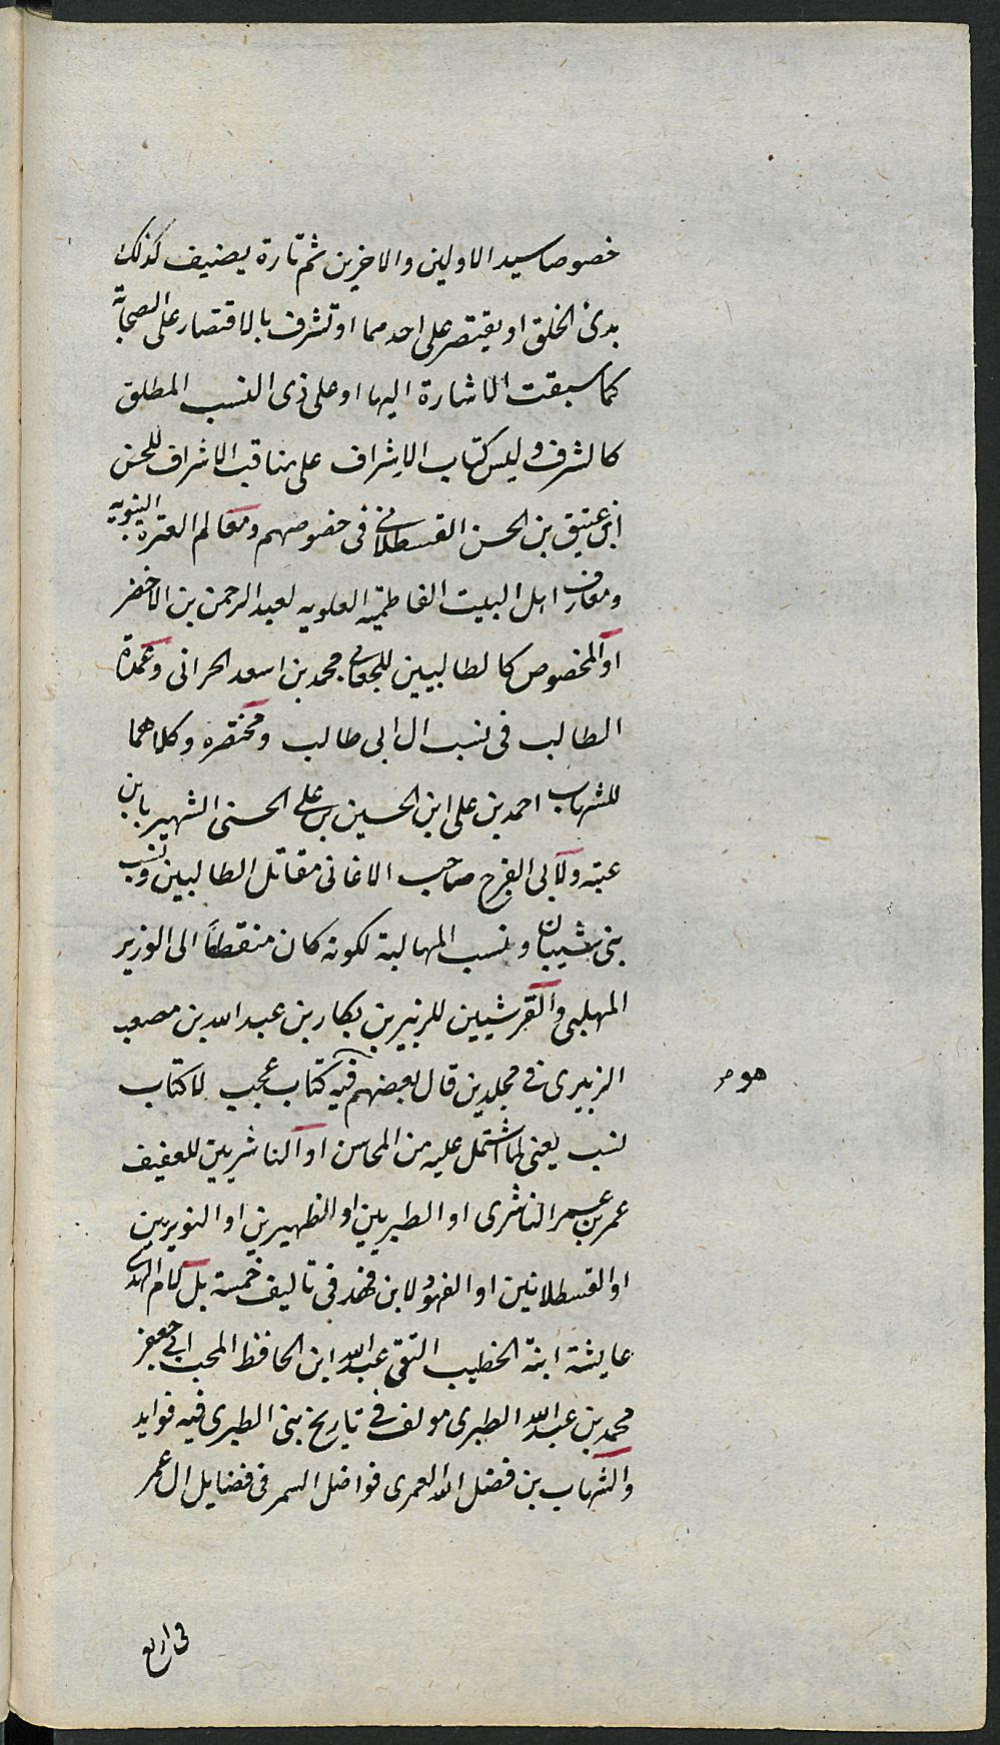 خصوصا سيد الاولين والاخرين ثم تارة يضيف كذلك
بدئ الخلق او يقتصر على احدهما او تشرف بالاقتصار على الصحابة
كما سبقت الاشارة اليها او على ذى النسب المطلق
كالشرف وليس كتاب الاشراف على مناقب الاشراف للحسن
ابن عتيق بن الحسن القسطلانى فى خصوصهم ومعالم العترة النبويه
ومعارف اهل البيت الفاطميه العلويه لعبد الرحمن بن الاخضر
او المخصوص كالطالبيين للجعانى محمد بن اسعد الحرانى وعمدة
الطالب فى نسب ال ابى طالب ومختصره وكلاهما
للشهاب احمد بن على ابن الحسين بن على الحسنى الشهير بابن
عتبه ولابى الفرج صاحب الاغانى مقاتل الطالبيين ونسب
بنى شيبان ونسب المهالبة لكونه كان منقطعاً الى الوزير
المهلبى والقرشيين للزبير بن بكار بن عبد الله بن مصعب
الزبيرى فى مجلدين قال بعضهم فيه كتاب عجب لا كتاب
هو مر
نسب يعنى لما اشتمل عليه من المحاسن او الناشريين للعفيف
عمر بن عمر الناشرى او الطبريين او الظهيرين او النويريين
او القسطلانين او الفهود لابن فهد فى تاليف خمسة بل لام الهدى
عايشة ابنة الخطيب التقى عبد الله ابن الحافظ المحب ابى جعفر
محمد بن عبد الله الطبرى مولف فى تاريخ بنى الطبرى فيه فوايد
والشهاب بن فضل الله العمرى فواضل السمر فى فضايل ال عمر
فى اربع